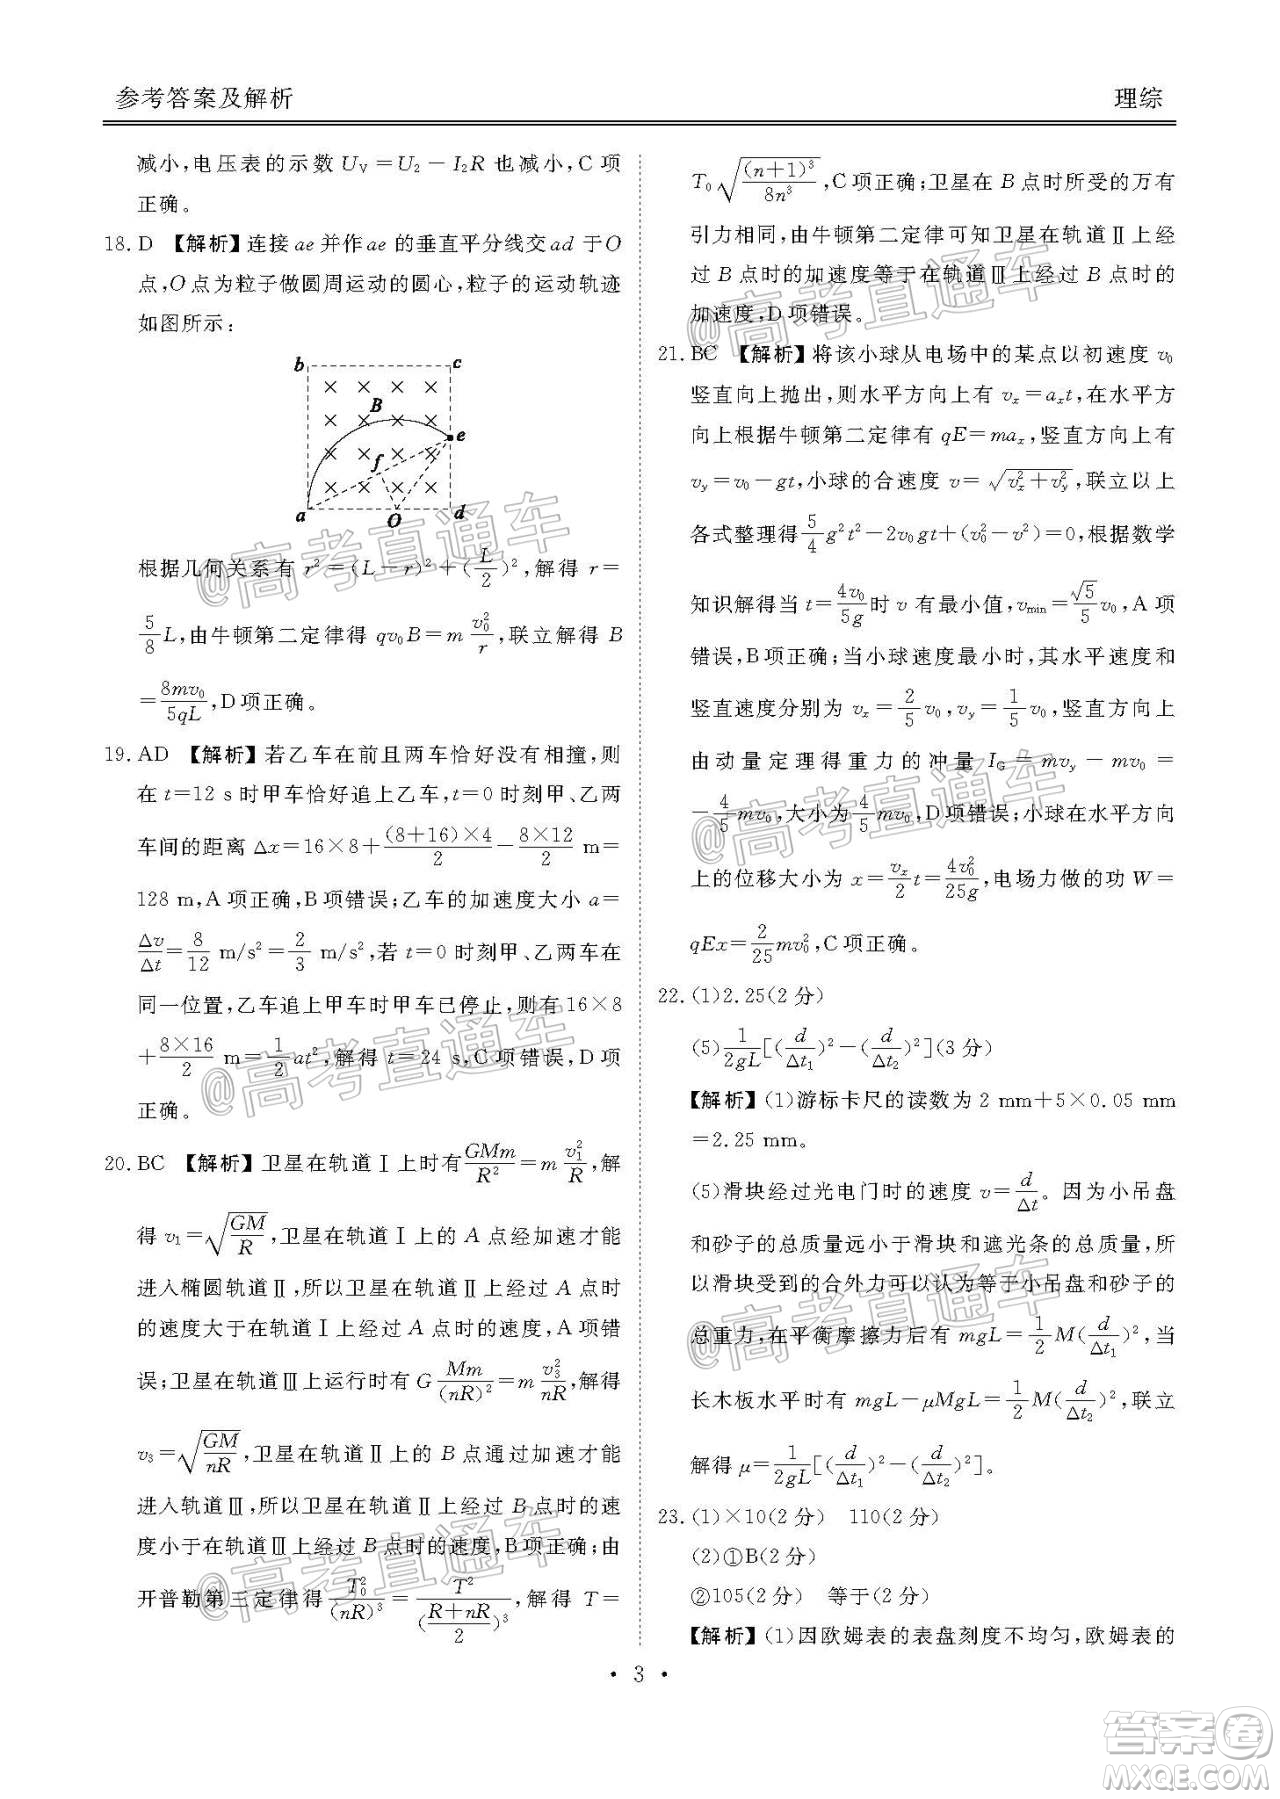 参考答案及解析
理综
减小,电压表的示数 U_V=U_2-I_2R 也减小,C 项
正确。
18. D 【解析】连接 ae 并作 ae 的垂直平分线交 ad 于O
点,O 点为粒子做圆周运动的圆心,粒子的运动轨迹
如图所示:
b c
B
e
f
a O d
根据几何关系有 r²=(L-r)²+(L/2)²,解得 r=
5/8 L,由牛顿第二定律得 qv₀B=m v₀²/r,联立解得 B
=8mv₀/5qL,D 项正确。
19. AD 【解析】若乙车在前且两车恰好没有相撞,则
在 t=12 s 时甲车恰好追上乙车,t=0 时刻甲、乙两
车间的距离 Δx=16×8+(8+16)×4/2-8×12/2 m=
128 m,A 项正确,B 项错误;乙车的加速度大小 a=
Δv/Δt=8/12 m/s²=2/3 m/s²,若 t=0 时刻甲、乙两车在
同一位置,乙车追上甲车时甲车已停止,则有 16×8
+8×16/2 m=1/2 at²,解得 t=24 s,C 项错误,D 项
正确。
20. BC 【解析】卫星在轨道Ⅰ上时有GMm/R²=m v₁²/R,解
得 v₁=√(GM/R),卫星在轨道Ⅰ上的 A 点经加速才能
进入椭圆轨道Ⅱ,所以卫星在轨道Ⅱ上经过 A 点时
的速度大于在轨道Ⅰ上经过 A 点时的速度,A 项错
误;卫星在轨道Ⅲ上运行时有 G Mm/(nR)²=m v₃²/nR,解得
v₃=√(GM/nR),卫星在轨道Ⅱ上的 B 点通过加速才能
进入轨道Ⅲ,所以卫星在轨道Ⅱ上经过 B 点时的速
度小于在轨道Ⅲ上经过 B 点时的速度,B项正确;由
开普勒第三定律得 T₀²/(nR)³=T²/((R+nR)/2)³,解得 T=
T₀√((n+1)³/8n³),C 项正确;卫星在 B 点时所受的万有
引力相同,由牛顿第二定律可知卫星在轨道Ⅱ上经
过 B 点时的加速度等于在轨道Ⅲ上经过 B 点时的
加速度,D 项错误。
21. BC 【解析】将该小球从电场中的某点以初速度 v₀
竖直向上抛出,则水平方向上有 vₓ=aₓt,在水平方
向上根据牛顿第二定律有 qE=maₓ,竖直方向上有
v_y=v₀-gt,小球的合速度 v=√(vₓ²+v_y²),联立以上
各式整理得5/4 g²t²-2v₀gt+(v₀²-v²)=0,根据数学
知识解得当 t=4v₀/5g时 v 有最小值,v_min=√5/5 v₀,A 项
错误,B 项正确;当小球速度最小时,其水平速度和
竖直速度分别为 vₓ=2/5 v₀,v_y=1/5 v₀,竖直方向上
由动量定理得重力的冲量 I_G=mv_y-mv₀=
-4/5 mv₀,大小为4/5 mv₀,D 项错误;小球在水平方向
上的位移大小为 x=vₓ/2 t=4v₀²/25g,电场力做的功 W=
qEx=2/25 mv₀²,C 项正确。
22. (1)2.25(2 分)
(5)1/2gL[(d/Δt₁)²-(d/Δt₂)²](3 分)
【解析】(1)游标卡尺的读数为 2 mm+5×0.05 mm
=2.25 mm。
(5)滑块经过光电门时的速度 v=d/Δt。因为小吊盘
和砂子的总质量远小于滑块和遮光条的总质量,所
以滑块受到的合外力可以认为等于小吊盘和砂子的
总重力,在平衡摩擦力后有 mgL=1/2 M(d/Δt₁)²,当
长木板水平时有 mgL-μMgL=1/2 M(d/Δt₂)²,联立
解得 μ=1/2gL[(d/Δt₁)²-(d/Δt₂)²]。
23. (1)×10(2 分) 110(2 分)
(2)①B(2 分)
②105(2 分) 等于(2 分)
【解析】(1)因欧姆表的表盘刻度不均匀,欧姆表的
· 3 ·
@高考直通车
@高考直通车
@高考直通车
@高考直通车
@高考直通车
@高考直通车
@高考直通车
答案圈
MXQE.COM